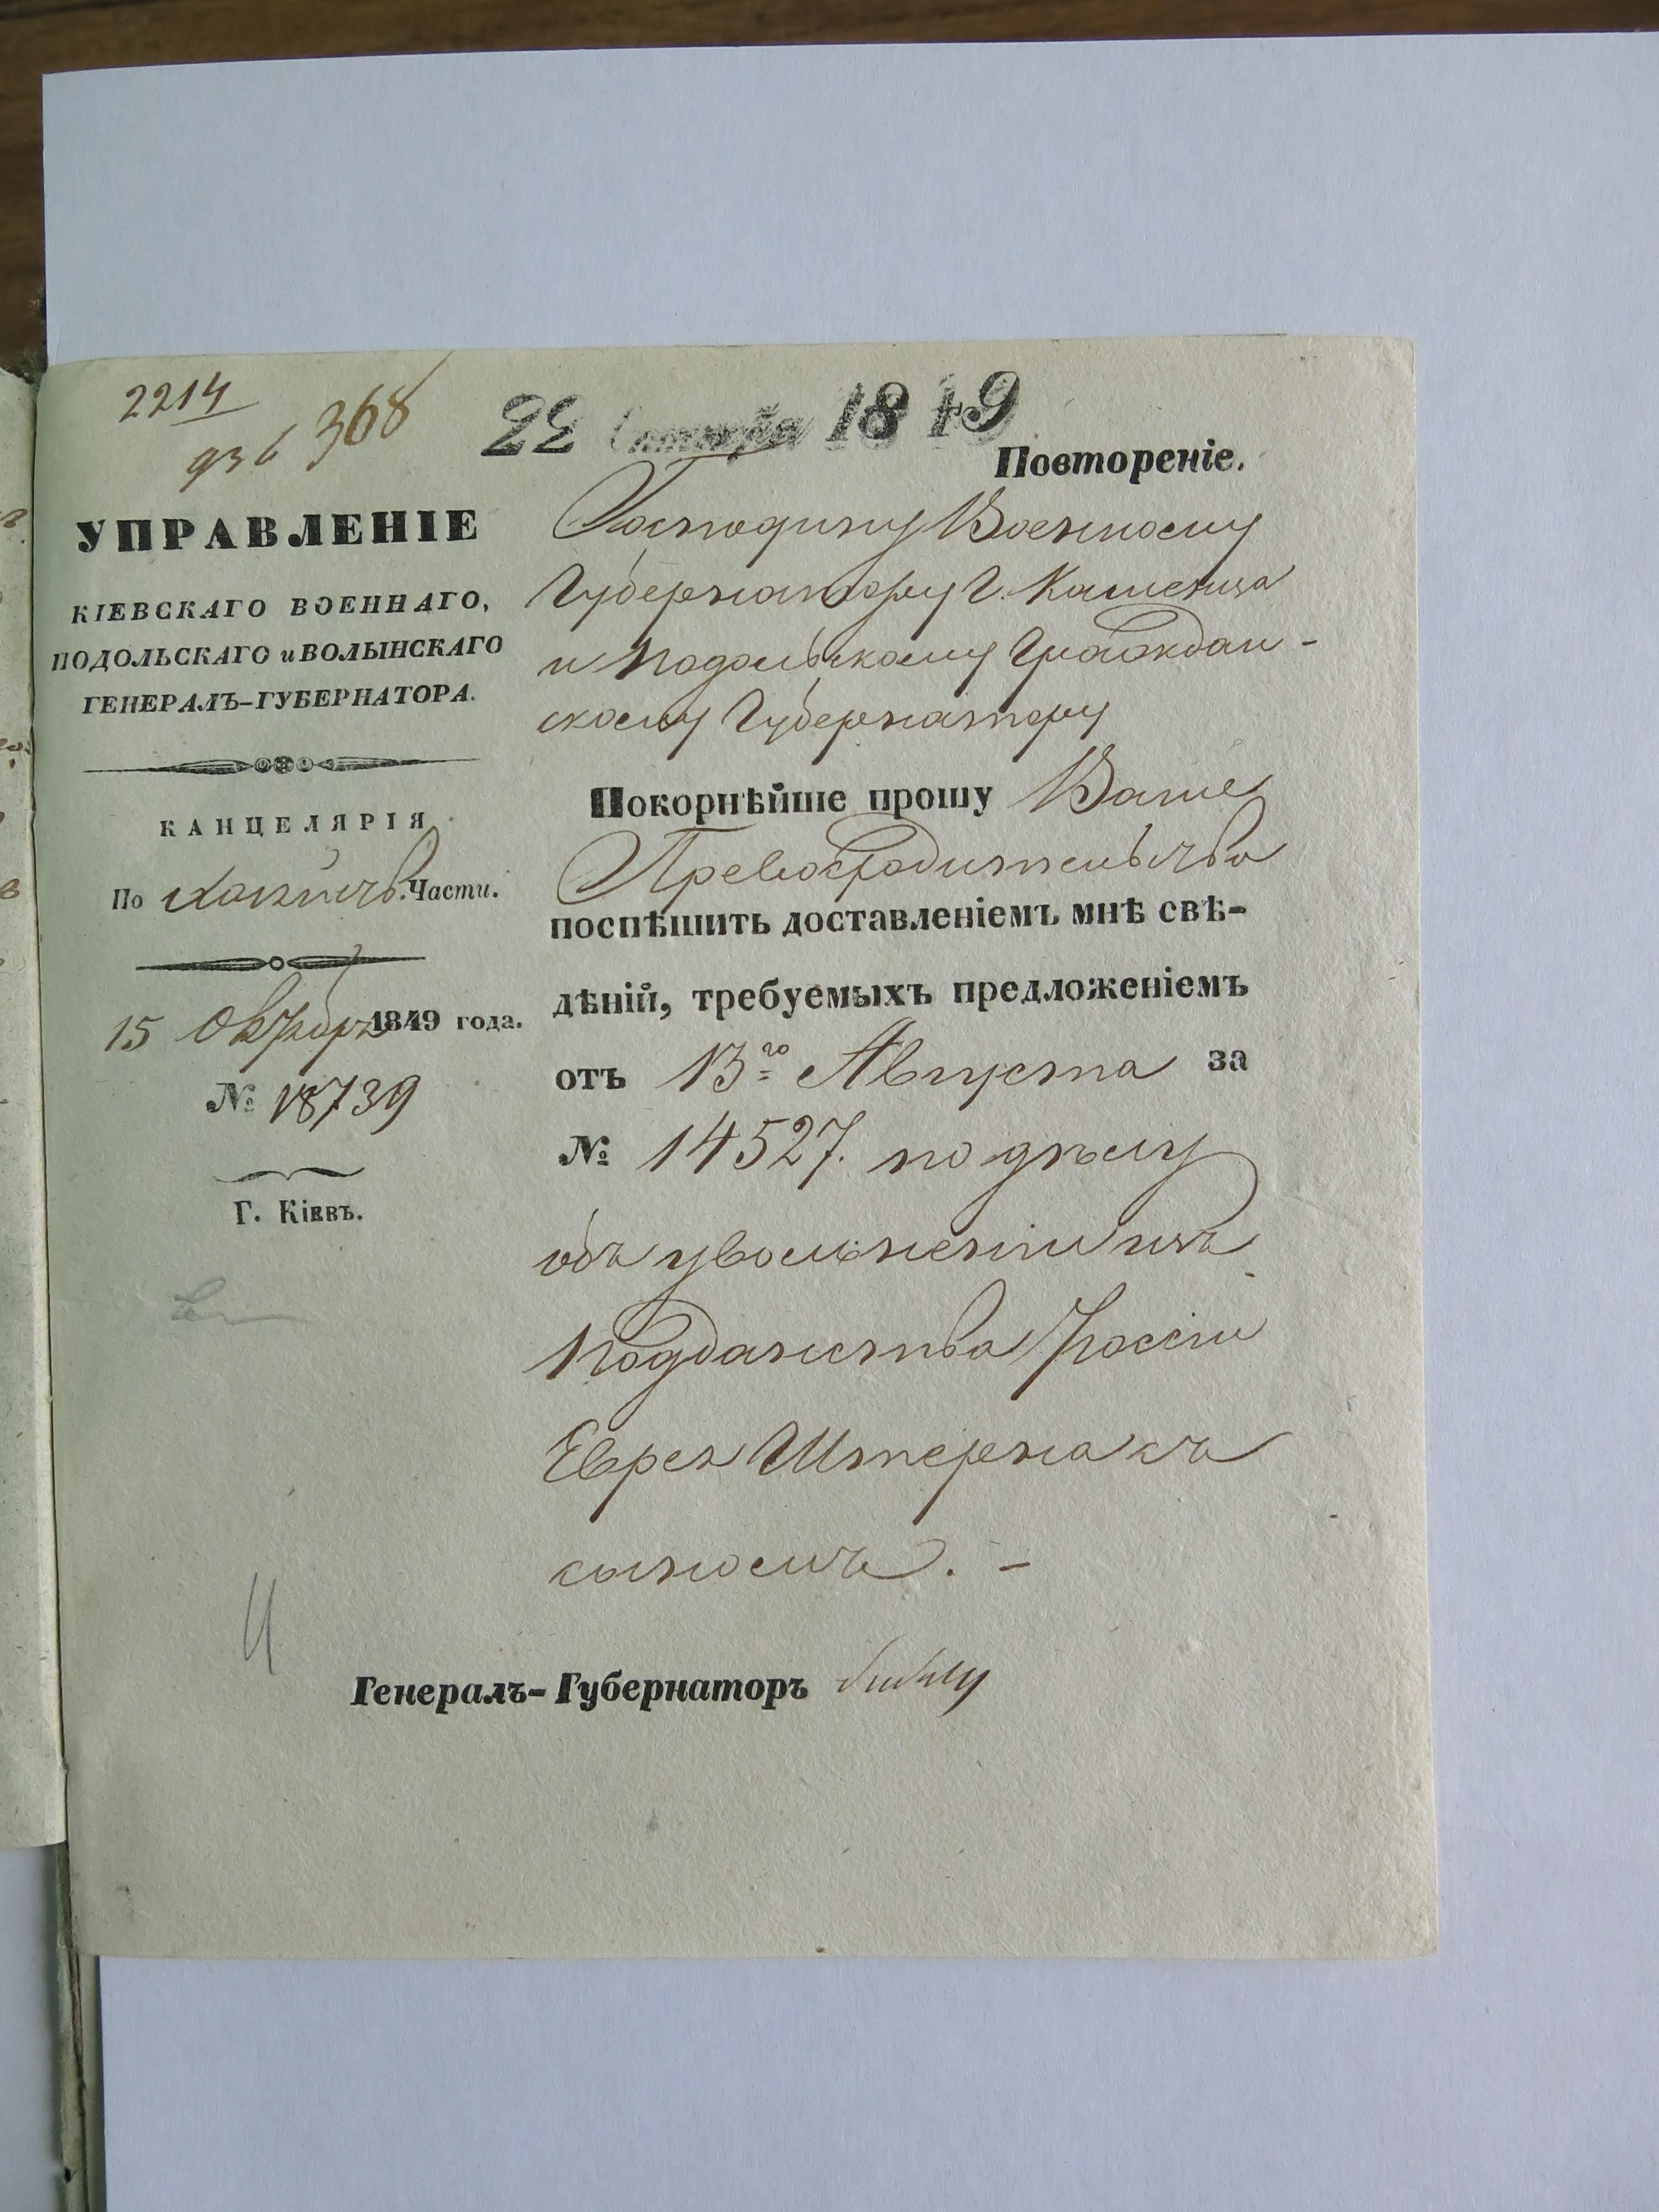 2214
936 368
22 Октября 1849
Повтореніе.
УПРАВЛЕНІЕ
КІЕВСКАГО ВОЕННАГО,
ПОДОЛЬСКАГО и ВОЛЫНСКАГО
ГЕНЕРАЛЪ-ГУБЕРНАТОРА.
КАНЦЕЛЯРІЯ
По Части.
15 Октября 1849 года.
№ 18739
Г. Кіевъ.
Господину Военному
Губернатору Г. Каменца
и Подольскому Граждан-
скому Губернатору
Покорнѣйше прошу Ваше
Превосходительство
поспѣшить доставленіемъ мнѣ свѣ-
дѣній, требуемыхъ предложеніемъ
отъ 13го Августа за
№ 14527. по дѣлу
объ увольненіи изъ
подданства Россіи
Еврея Штерна съ
сыномъ. -
Генералъ-Губернаторъ